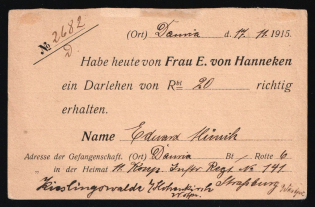 № 2682
D.
(Ort) Dauria d. 17. 11. 1915.
Habe heute von Frau E. von Hanneken
ein Darlehen von Rbl 20 richtig
erhalten.
Name Eduard
Adresse der Gefangenschaft. (Ort) Dauria Bt Rotte 6
in der Heimat 11 Komp. Inftr Regt № 141
Strasburg